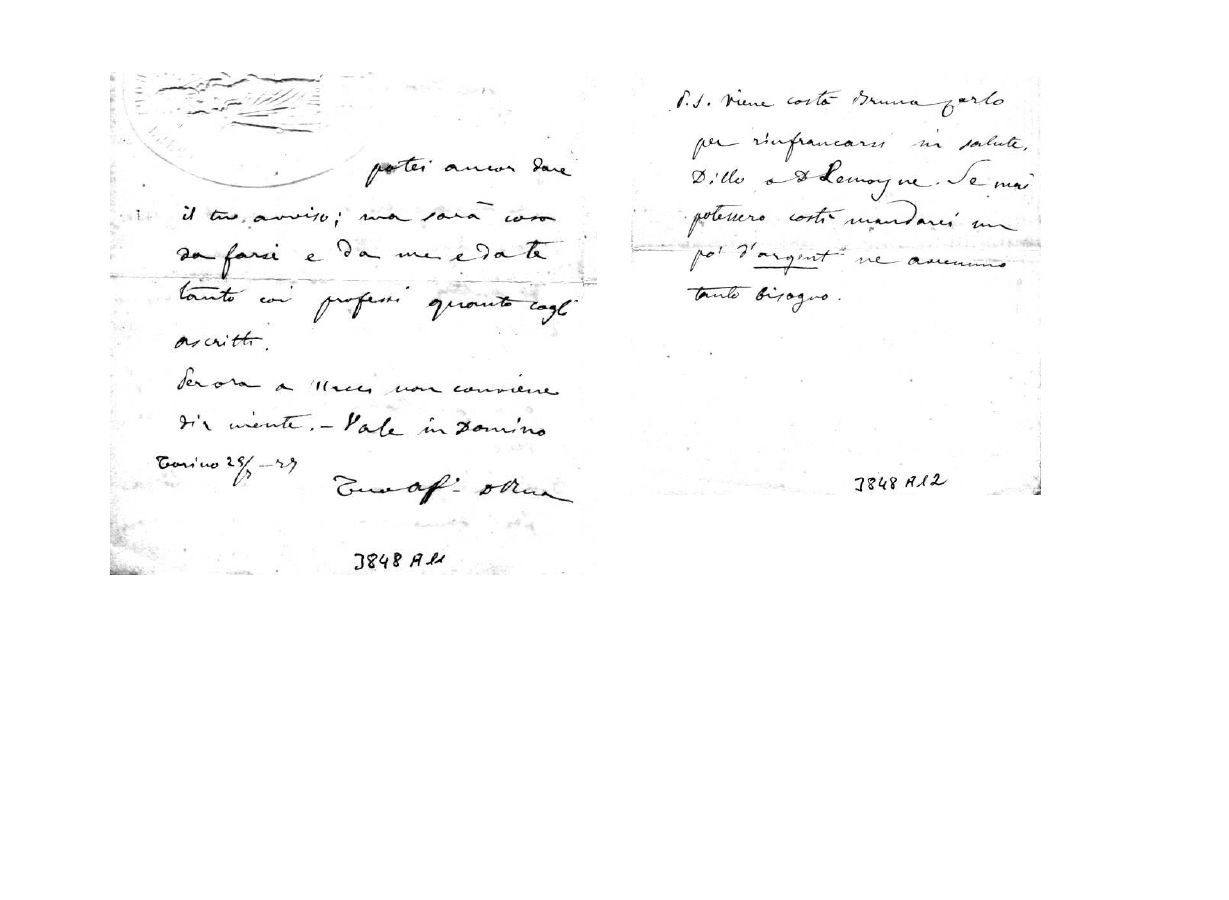 potei ancor dare
il tuo avviso; ma sarà cosa
da farsi e da me e da te
tanto coi professi quanto cogli
ascritti.
Per ora a non conviene
dir niente. – Vale in Domino
Torino 29/ – 79
Tuo Aff. D Rua
3848 A 11
P. S. Viene costà Bruna Carlo
per rinfrancarsi in salute.
Dillo a D Lemoyne. Se mai
potessero costì mandarci un
po' d'argent ne avremmo
tanto bisogno.
3848 A 12